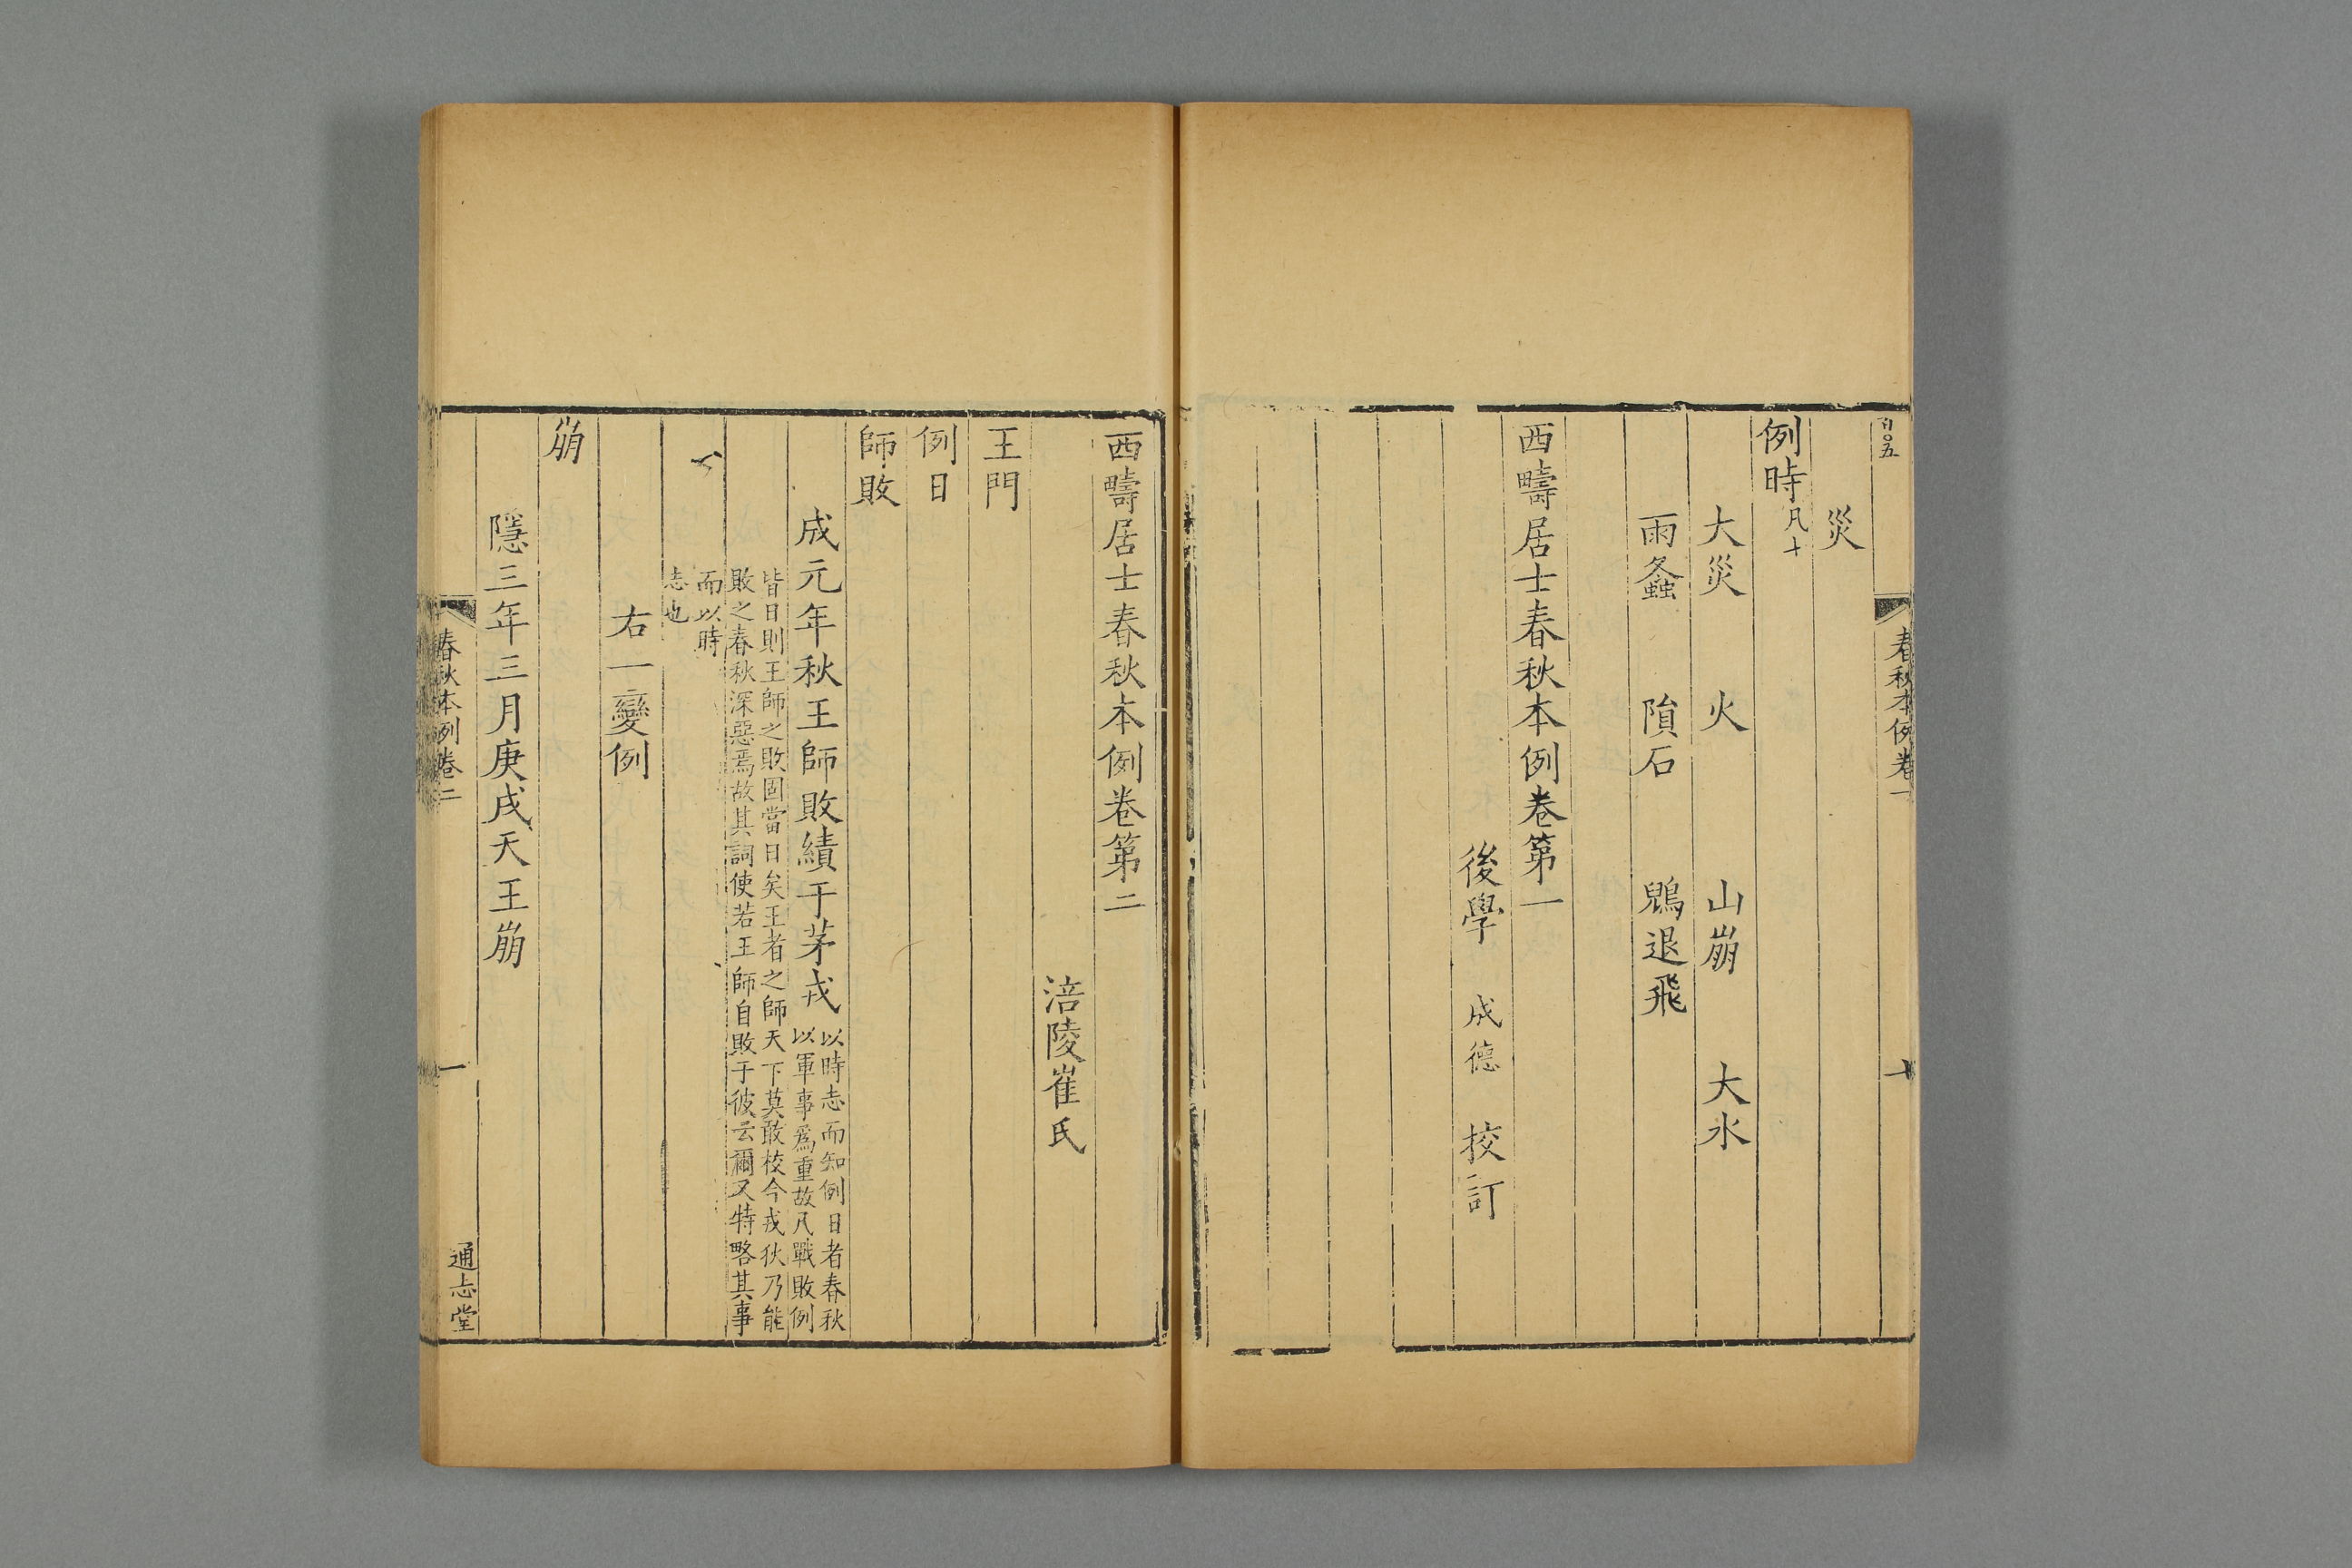 百〇五
春秋本例卷一
十
災
例時凡十
大災 火 山崩 大水
雨螽 隕石 鷁退飛
西疇居士春秋本例卷第一
後學 成德 校訂
西疇居士春秋本例卷第二
涪陵崔氏
王門
例日
師敗
成元年秋王師敗績于茅戎以時志而知例日者春秋
以軍事爲重故凡戰敗例
皆日則王師之敗固當日矣王者之師天下莫敢校今戎狄乃能
敗之春秋深惡焉故其詞使若王師自敗于彼云爾又特略其事
而以時
志也
右一變例
崩
隱三年三月庚戌天王崩
春秋本例卷二
一
通志堂